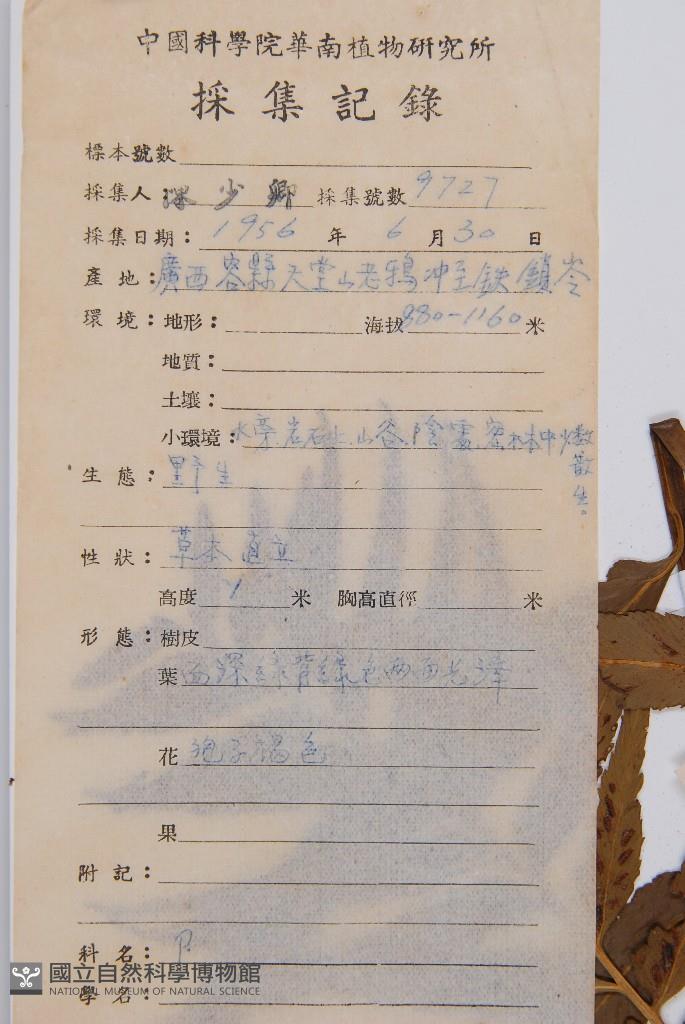 中國科學院華南植物研究所
採集記錄
標本號數
採集人：陳少卿 採集號數 9727
採集日期：1956 年 6 月 30 日
產地：廣西容縣天堂山老鴉冲至鉄鎖岺
環境：地形： 海拔 880-1160 米
地質：
土壤：
小環境：水旁岩石上.山谷.陰處.密林中少数
散生。
生態：野生
性狀：草本直立
高度 1 米 胸高直徑 米
形態：樹皮
葉 面深綠背綠色两面光澤
花 孢子褐色
果
附記：
科名：P
學名：
國立自然科學博物館
NATIONAL MUSEUM OF NATURAL SCIENCE